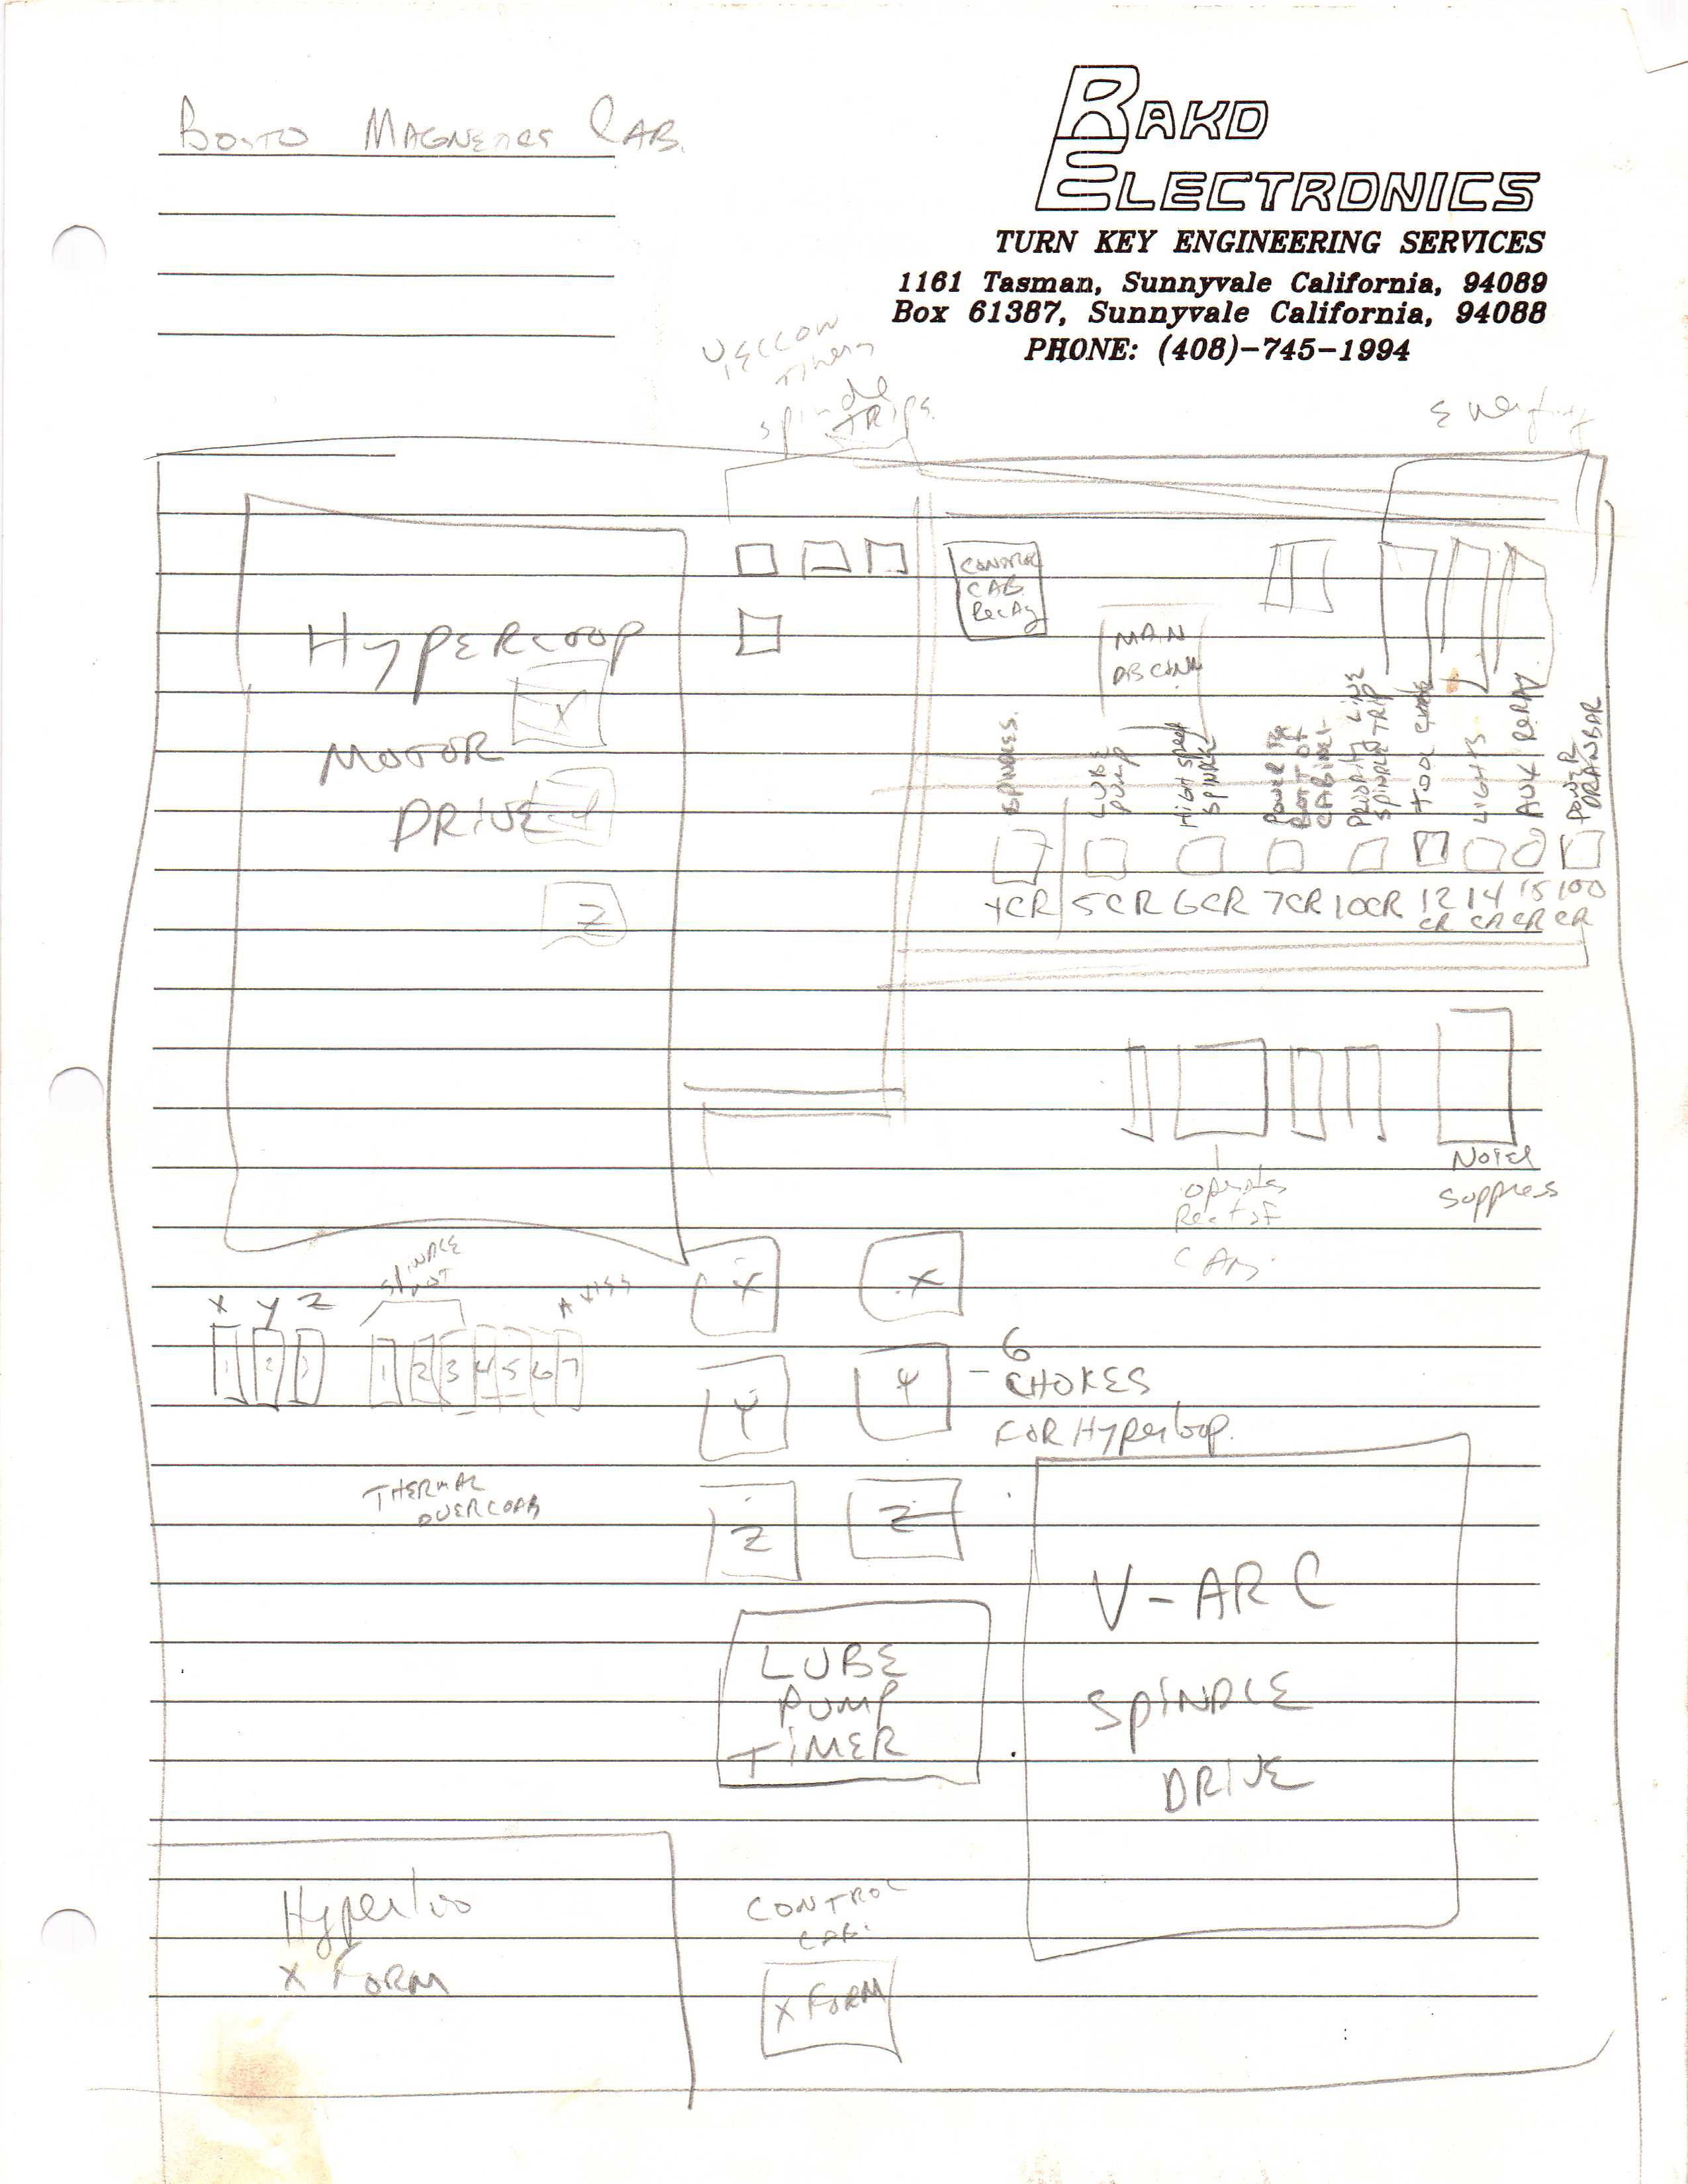 BOSTO MAGNETICS CAB.
RAKO
ELECTRONICS
TURN KEY ENGINEERING SERVICES
1161 Tasman, Sunnyvale California, 94089
Box 61387, Sunnyvale California, 94088
PHONE: (408)-745-1994
YELLOW
spindle
TRIPS
HYPERLOOP
X
MOTOR
DRIVE
Y
Z
CONTROL
CAB
Relay
MAIN
DISCONN
SPINDLES.
LUBE
PUMP
HIGH SPEED
SPINDLE
POWER TO
BOT OF
CABINET
PRIORITY LINE
SPINDLE TRIP
TOOL CHANGE
LIGHTS
AUX RELAY
POWER
DRAWBAR
4CR 5CR 6CR 7CR 10CR 12 CR 14 CR 15 CR 100 CR
operates
Rest of
CAB.
Noise
Suppress
X Y Z
1 2 3
SPINDLE
MOT
1 2 3 4 5 6 7
THERMAL
OVERLOAD
X X
Y Y
Z Z
- 6
CHOKES
FOR Hyperloop.
LUBE
PUMP
TIMER
V-ARC
SPINDLE
DRIVE
Hyperloo
X FORM
CONTROL
CAB.
X FORM